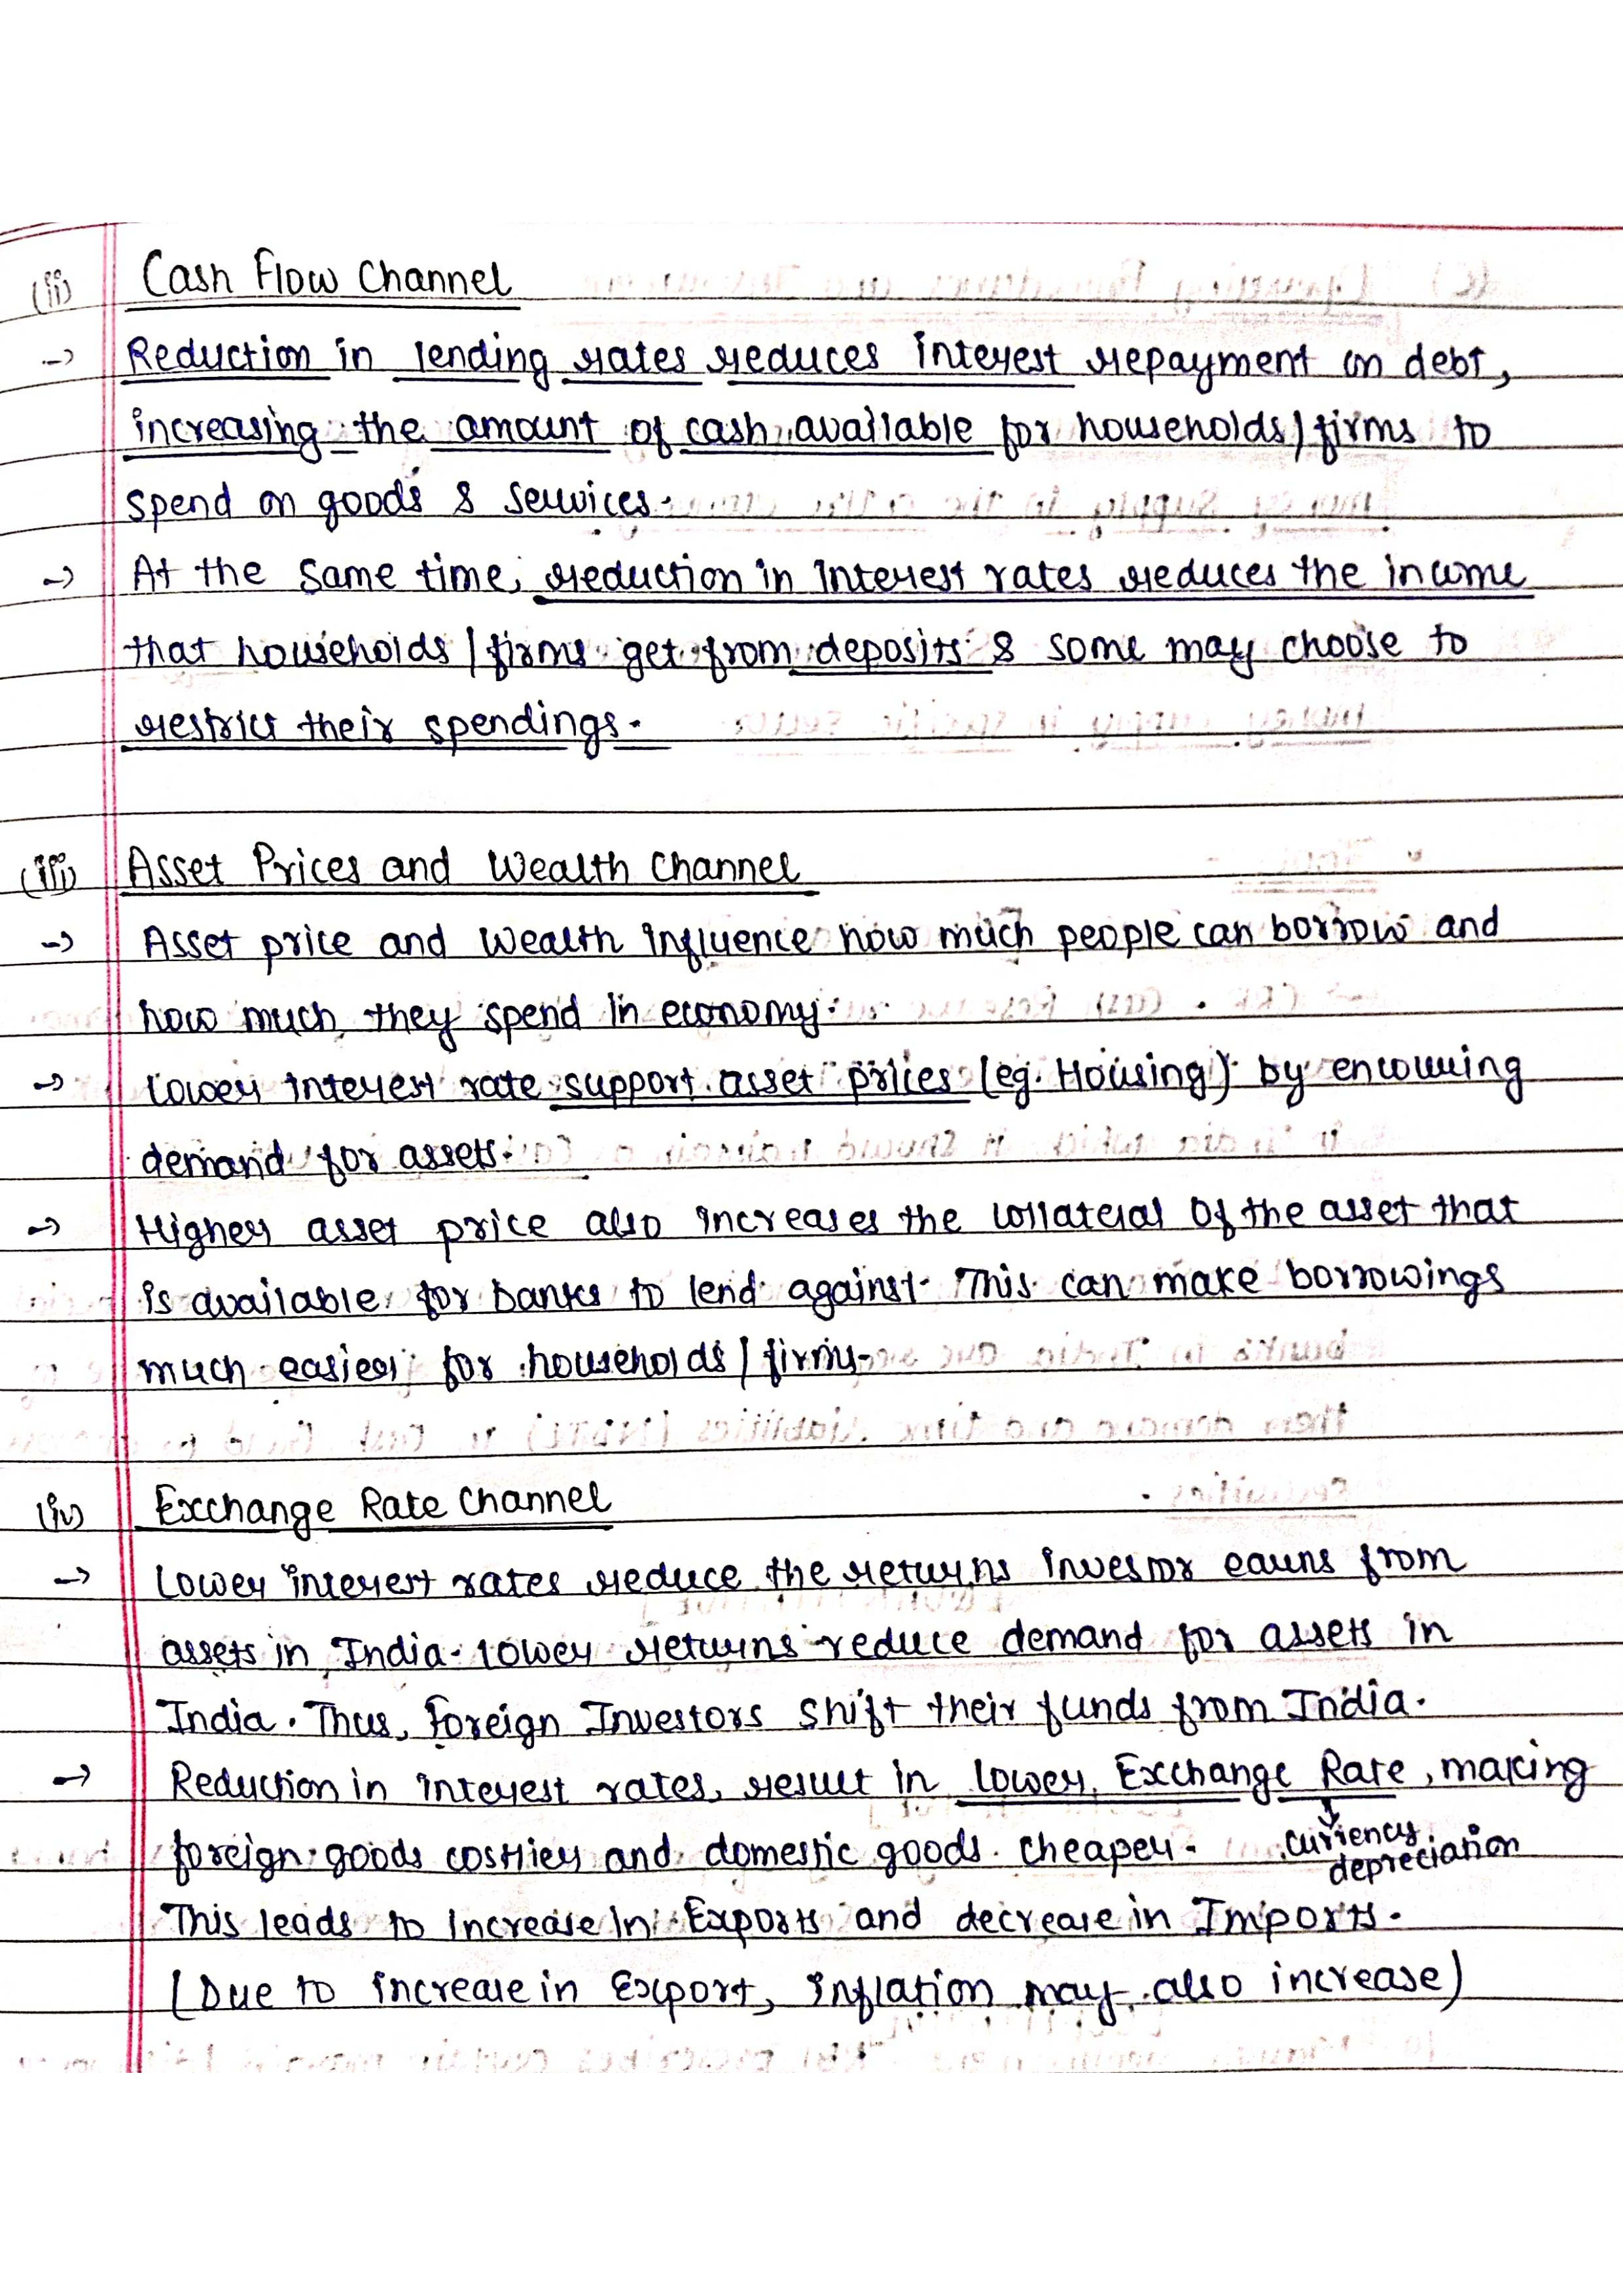 (ii) Cash Flow Channel
-> Reduction in lending rates reduces interest repayment on debt,
increasing the amount of cash available for households/firms to
spend on goods & services.
-> At the same time, reduction in interest rates reduces the income
that households/firms get from deposits & some may choose to
restrict their spendings.
(iii) Asset Prices and Wealth Channel
-> Asset price and wealth influence how much people can borrow and
how much they spend in economy.
-> Lower interest rate support asset prices (eg. Housing) by
demand for assets.
-> Higher asset price also increases the collateral of the asset that
is available for banks to lend against. This can make borrowings
much easier for households/firms.
(iv) Exchange Rate Channel
-> Lower interest rates reduce the returns investor earns from
assets in India. Lower returns reduce demand for assets in
India. Thus, foreign Investors shift their funds from India.
-> Reduction in interest rates, result in lower Exchange Rate, making
foreign goods costlier and domestic goods cheaper. currency
depreciation
This leads to increase in Exports and decrease in Imports.
(Due to increase in Export, inflation may also increase)